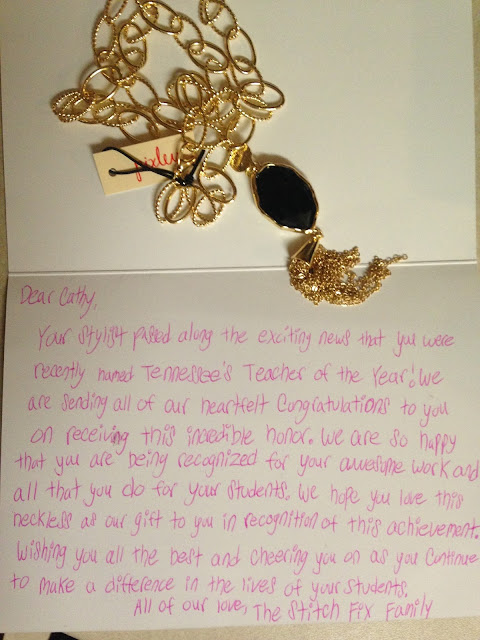 pixley
Dear Cathy,
Your stylist passed along the exciting news that you were
recently named Tennessee's Teacher of the Year! We
are sending all of our heartfelt Congratulations to you
on receiving this incredible honor. We are so happy
that you are being recognized for your awesome work and
all that you do for your students. We hope you love this
neckless as our gift to you in recognition of this achievement.
Wishing you all the best and cheering you on as you Continue
to make a difference in the lives of your students.
All of our love, The Stitch Fix Family